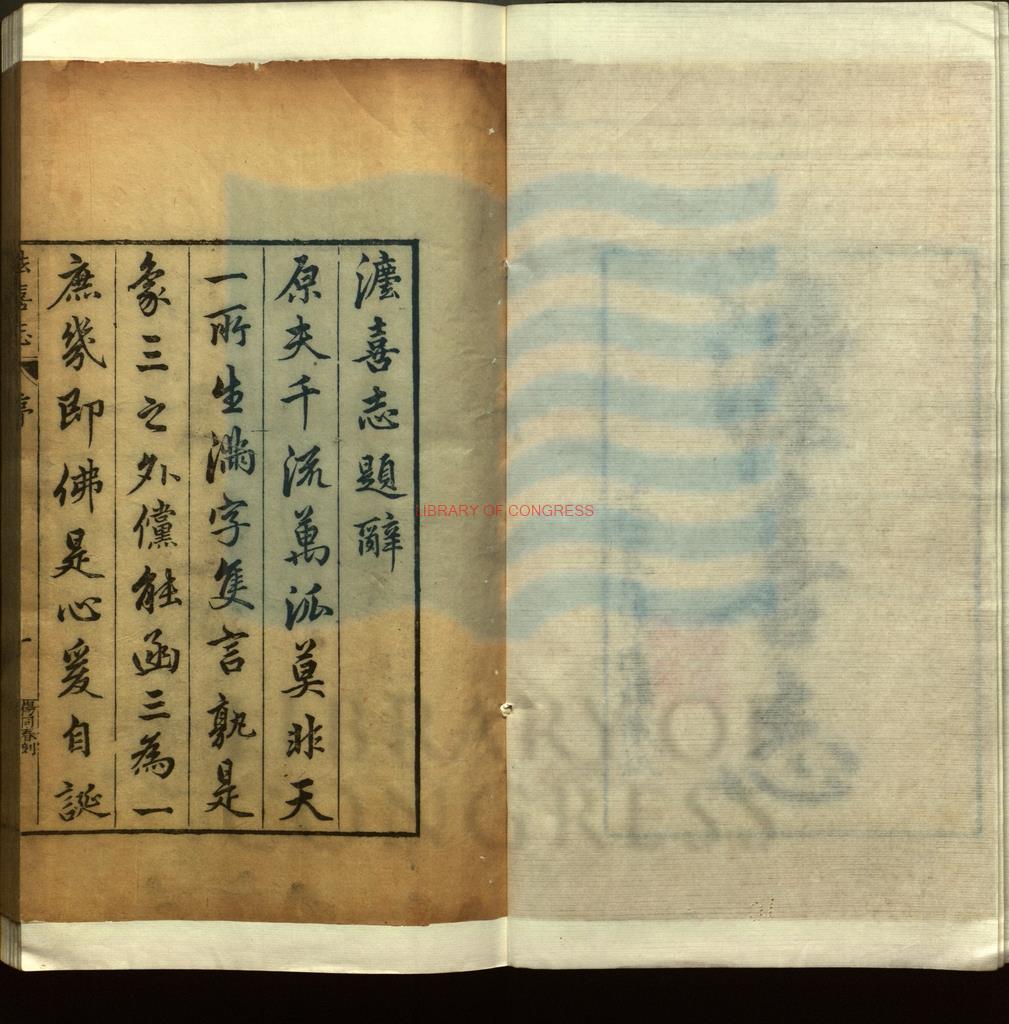 灋喜志題辭
原夫千流萬派莫非天
一所生滿字隻言孰是
象三之外儻能函三為一
庶幾即佛是心爰自誕
法喜志
序
一
傅同春刻
LIBRARY OF CONGRESS